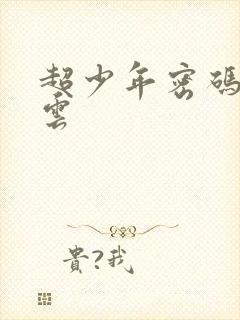 超少年密碼
雲
貴?我